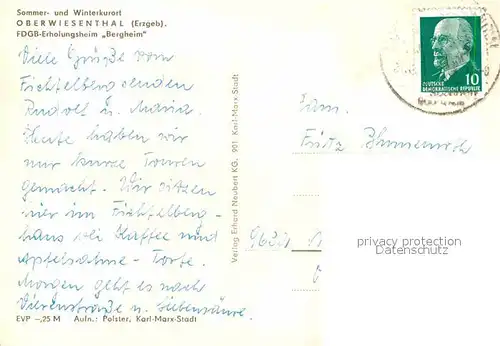 Sommer- und Winterkurort
OBERWIESENTHAL (Erzgeb).
FDGB-Erholungsheim „Bergheim"
Viele Grüße vom
Fichtelberg senden
Rudolf u. Maria.
Heute haben wir
nur kurze Touren
gemacht. Wir sitzen
hier im Fichtelberg-
haus bei Kaffee und
Apfelsahne-Torte.
Morgen geht es nach
u.
EVP –,25 M Aufn.: Polster, Karl-Marx-Stadt
Verlag Erhard Neubert KG, 901 Karl-Marx-Stadt
DEUTSCHE
DEMOKRATISCHE REPUBLIK
10
Fam.
Fritz
privacy protection
Datenschutz